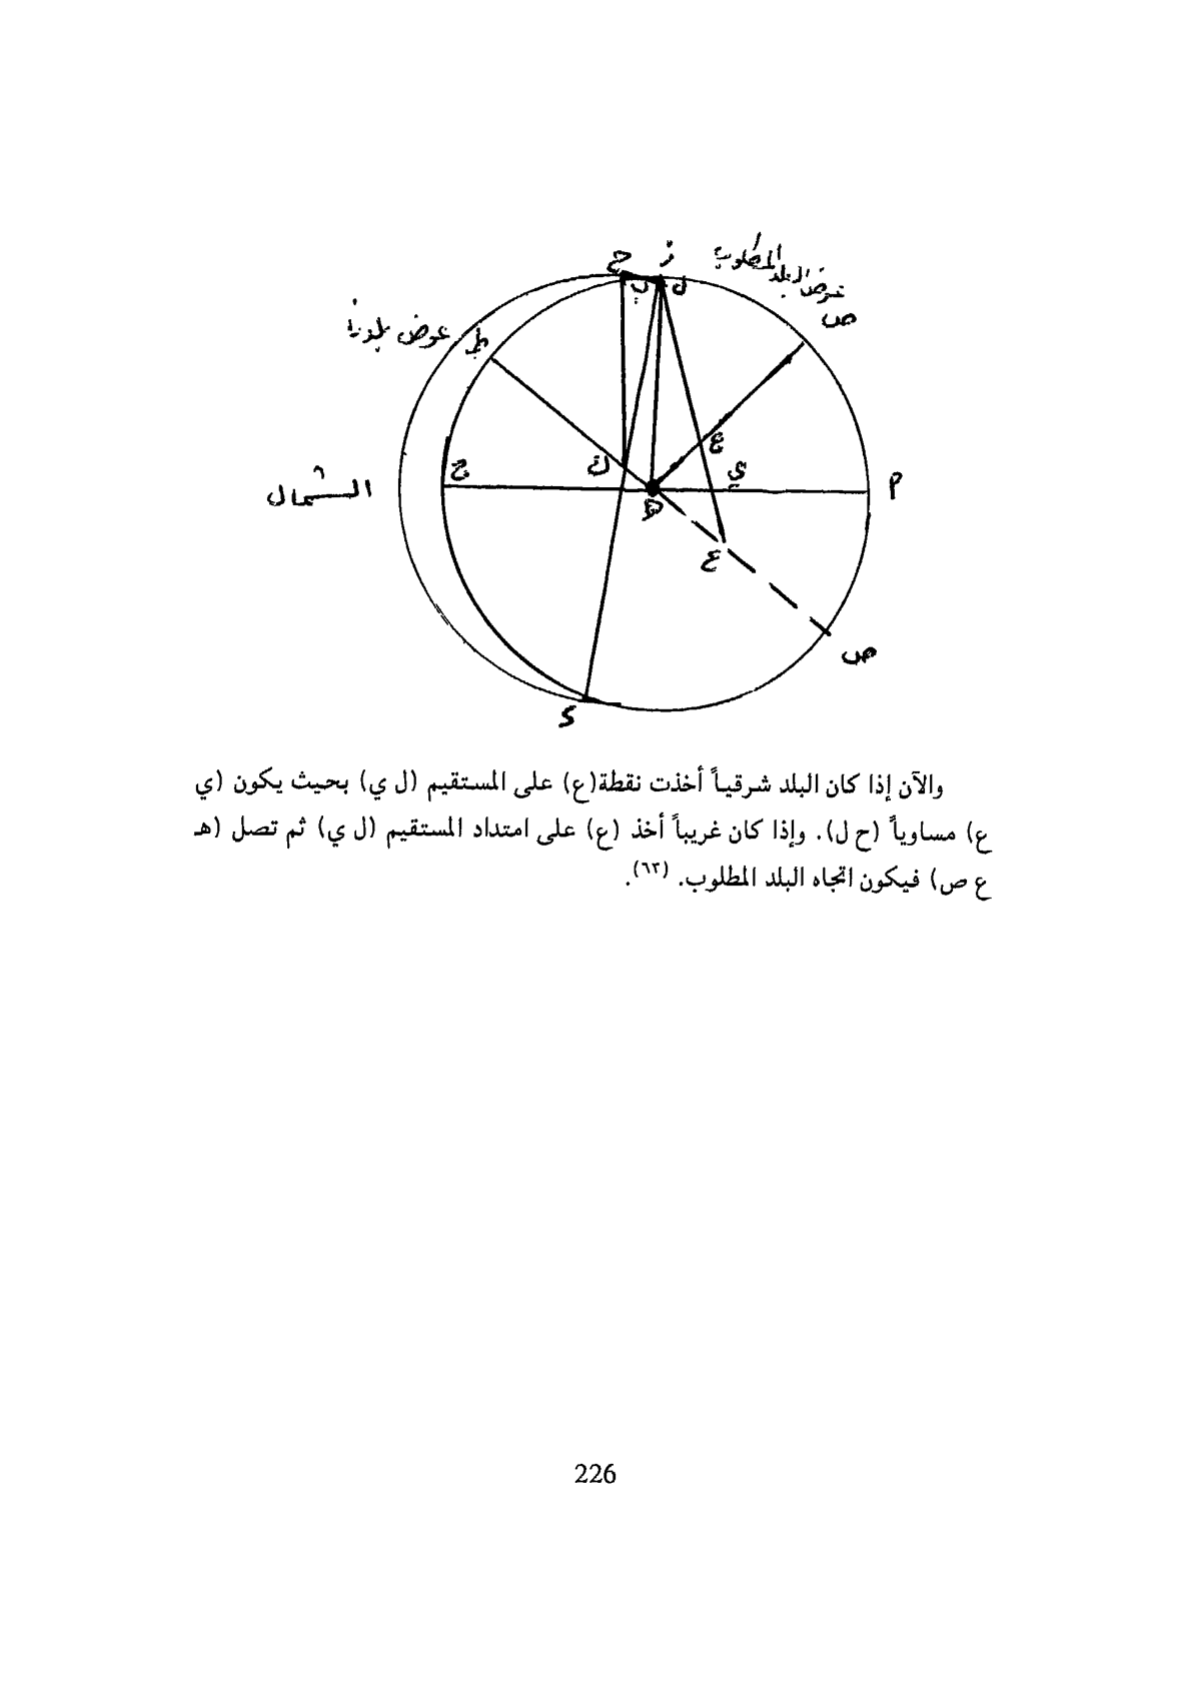 ح ز عرض البلد المطلوب
ص
عرض بلدنا ط
ل
ع
ك
الشمال ج ي م
هـ
ع
ص
د
والآن إذا كان البلد شرقياً أخذت نقطة(ع) على المستقيم (ل ي) بحيث يكون (ي
ع) مساوياً (ح ل). وإذا كان غريباً أخذ (ع) على امتداد المستقيم (ل ي) ثم تصل (هـ
ع ص) فيكون اتجاه البلد المطلوب. (٦٣).
226